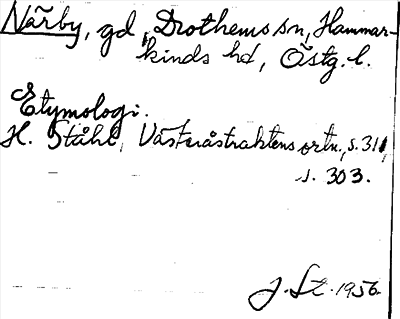 Närby, gd, Drothems sn, Hammar-
kinds hd, Östg. l.
Etymologi.
H. Ståhl, Västeråstraktens ortn., s. 311,
s. 303.
J. St. 1956